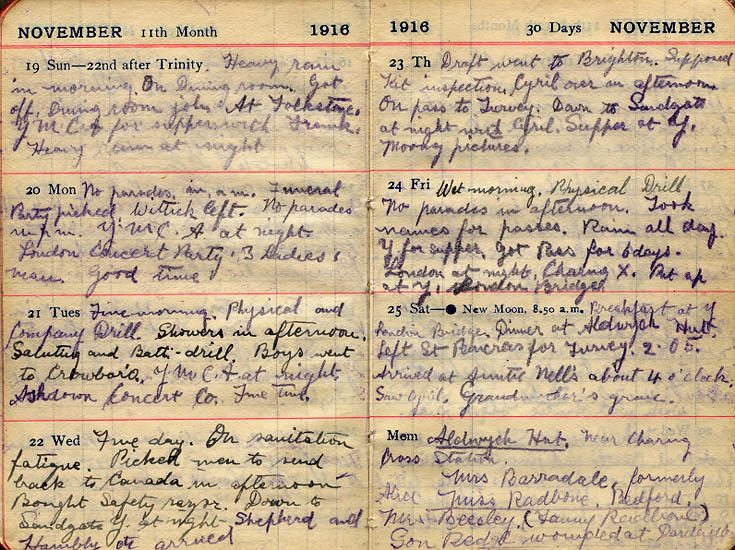 NOVEMBER 11th Month 1916
19 Sun—22nd after Trinity. Heavy rain
in morning. On Dining room. Got
off. Dining room john. At Folkstone.
Y M C A for supper with Frank.
Heavy rain at night
20 Mon No parades in a.m. Funeral
Party picked. Wittick left. No parades
in p.m. Y M C. A. at night
London Concert Party. 3 Ladies 1
man. Good time
21 Tues Fine morning. Physical and
Company Drill. Showers in afternoon.
Saluting and Batt-drill. Boys went
to Crowboro. Y M C A at night
Ashdown Concert Co. Fine time.
22 Wed Fine day. On sanitation
fatigue. Picked men to send
back to Canada in afternoon
Bought Safety razor. Down to
Sandgate Y. at night Shepherd and
Hambly etc arrived
1916 30 Days NOVEMBER
23 Th Draft went to Brighton. Supposed
Kit inspection. Cyril over in afternoon
On pass to Turvey. Down to Sandgate
at night with Cyril. Supper at Y.
Moving pictures.
24 Fri Wet morning. Physical Drill
No parades in afternoon. Took
names for passes. Rain all day.
Y for supper. Got Pass for 6 days.
London at night. Charing X. Put up
at Y. London Bridge
25 Sat—● New Moon, 8.50 a.m. Breakfast at Y
London Bridge. Dinner at Aldwych Hut.
Left St Pancras for Turvey. 2.05.
Arrived at Auntie Nell's about 4 o'clock.
Saw Cyril. Grandmother's grave.
Mem Aldwych Hut. Near Charing
Cross Station.
Mrs Barradale, formerly
Alice Miss Radbone, Bedford.
Mrs Beesley. (Fanny Radbone)
Son Reg wounded at